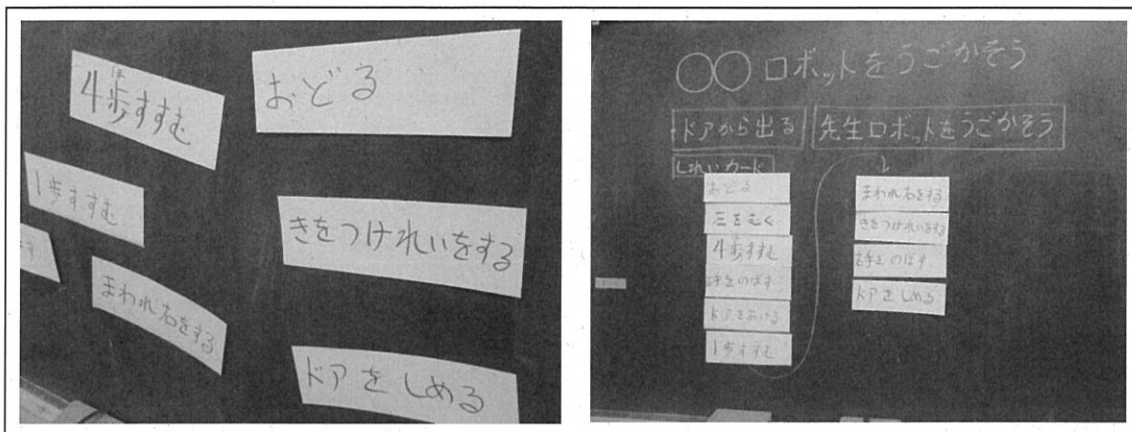 4歩すすむ
ほ
おどる
1歩すすむ
きをつけれいをする
まわれ右をする
ドアをしめる
○○ロボットをうごかそう
ドアから出る
先生ロボットをうごかそう
しれいカード
おどる
左をむく
4歩すすむ
右手をのばす
ドアをあける
1歩すすむ
まわれ右をする
きをつけれいをする
右手をのばす
ドアをしめる